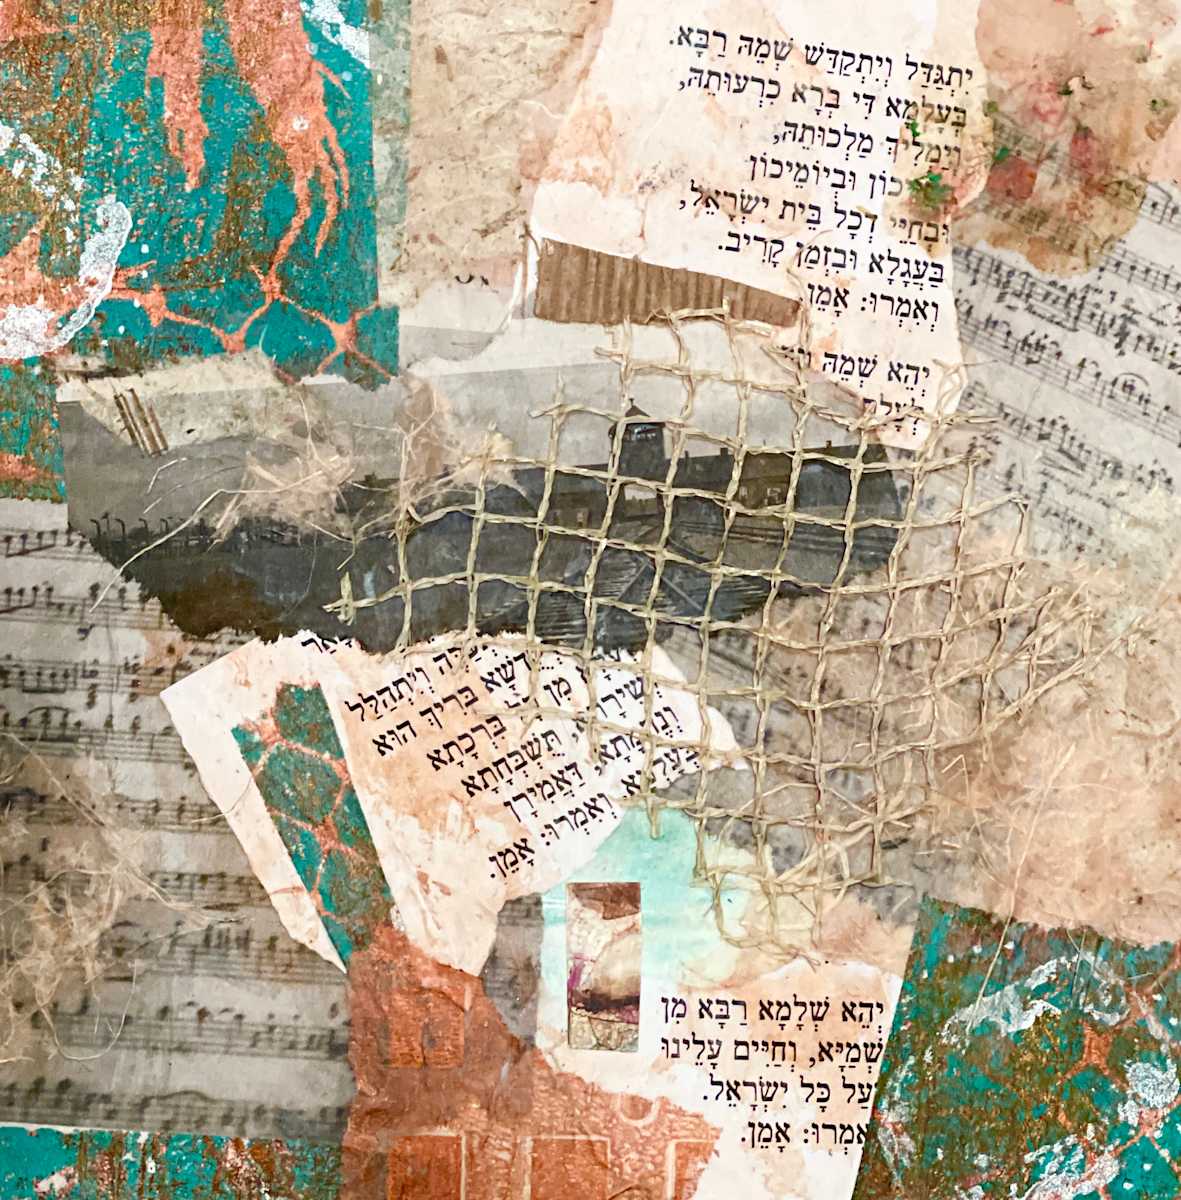 יִתְגַּדַּל וְיִתְקַדַּשׁ שְׁמֵהּ רַבָּא.
בְּעָלְמָא דִּי בְרָא כִרְעוּתֵהּ,
וְיַמְלִיךְ מַלְכוּתֵהּ,
כוֹן וּבְיוֹמֵיכוֹן
וּבְחַיֵּי דְכָל בֵּית יִשְׂרָאֵל,
בַּעֲגָלָא וּבִזְמַן קָרִיב.
וְאִמְרוּ: אָמֵן
יְהֵא שְׁמֵהּ
לְעָלַם
וְיִתְהַלַּל
דְשָׁא בְּרִיךְ הוּא
מִן כָּל בִּרְכָתָא
וְשִׁירָ תֻּשְׁבְּחָתָא
וְנֶחֱמָתָא, דַּאֲמִירָן
בְּעָלְמָא וְאִמְרוּ: אָמֵן.
יְהֵא שְׁלָמָא רַבָּא מִן
שְׁמַיָּא, וְחַיִּים עָלֵינוּ
וְעַל כָּל יִשְׂרָאֵל.
אִמְרוּ: אָמֵן.